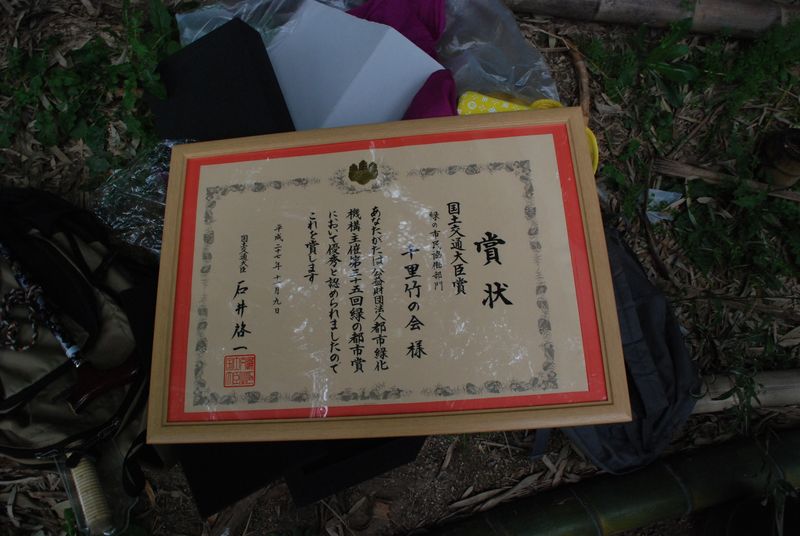 賞状
国土交通大臣賞
緑の市民協働部門
千里竹の会 様
あなたがたは公益財団法人都市緑化
機構主催第三十五回緑の都市賞
において優秀と認められましたので
これを賞します
平成二十七年十月九日
国土交通大臣 石井啓一